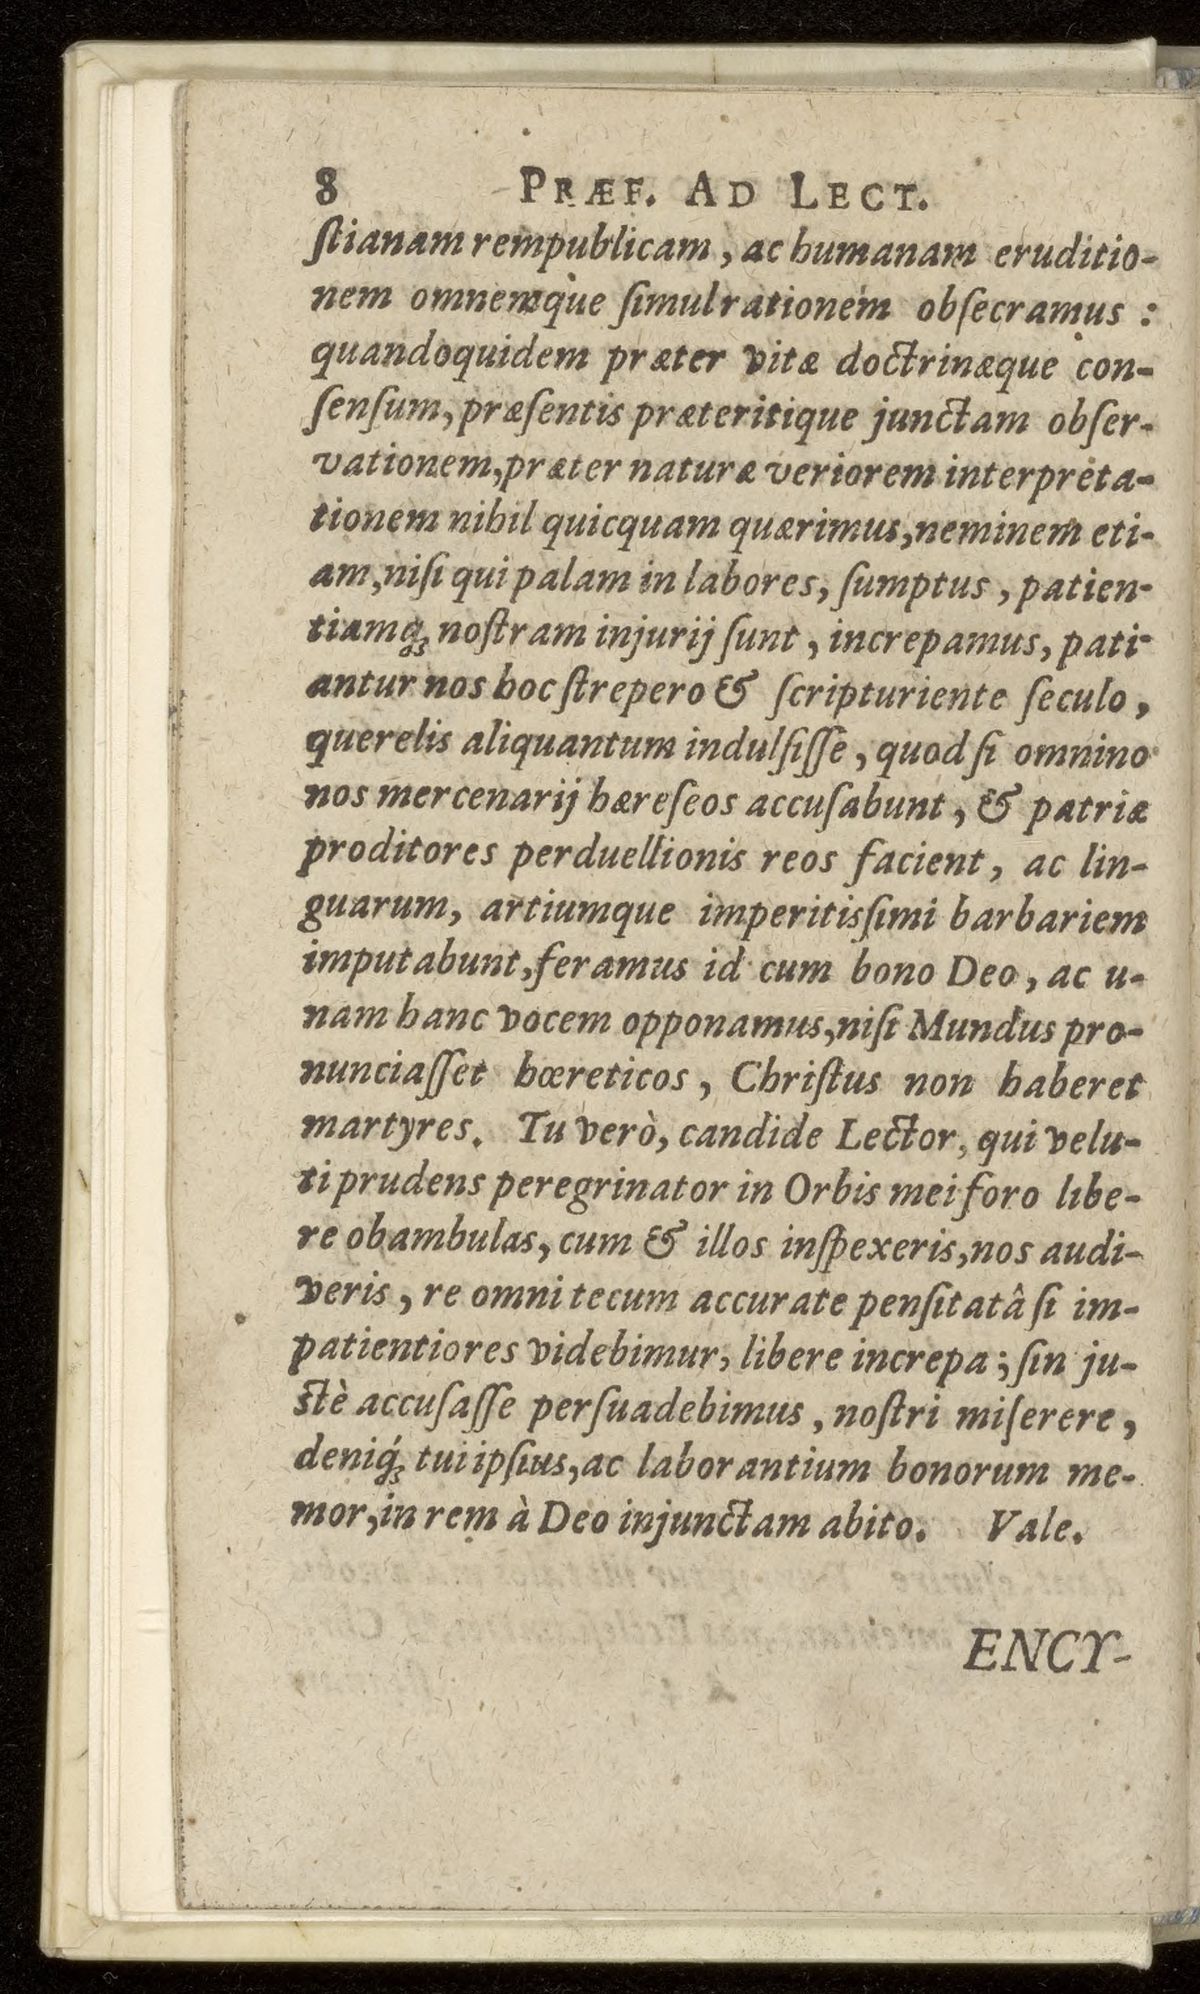 8 PRÆF. AD LECT.
ſtianam rempublicam, ac humanam eruditio-
nem omnemque ſimul rationem obſecramus :
quandoquidem præter vitæ doctrinæque con-
ſenſum, præſentis præteritique junctam obſer-
vationem, præter naturæ veriorem interpreta-
tionem nihil quicquam quærimus, neminem eti-
am, niſi qui palam in labores, ſumptus, patien-
tiamq; noſtram injurij ſunt, increpamus, pati-
antur nos hoc ſtrepero & ſcripturiente ſeculo,
querelis aliquantum indulſiſſe, quod ſi omnino
nos mercenarij hæreſeos accuſabunt, & patriæ
proditores perduellionis reos facient, ac lin-
guarum, artiumque imperitisſimi barbariem
imputabunt, feramus id cum bono Deo, ac u-
nam hanc vocem opponamus, niſi Mundus pro-
nunciaſſet hœreticos, Chriſtus non haberet
martyres. Tu verò, candide Lector, qui velu-
ti prudens peregrinator in Orbis mei foro libe-
re obambulas, cum & illos inſpexeris, nos audi-
veris, re omni tecum accurate penſitatâ ſi im-
patientiores videbimur, libere increpa; ſin ju-
ſtè accuſaſſe perſuadebimus, noſtri miſerere,
deniq́; tui ipſius, ac laborantium bonorum me-
mor, in rem à Deo injunctam abito. Vale.
ENCY-